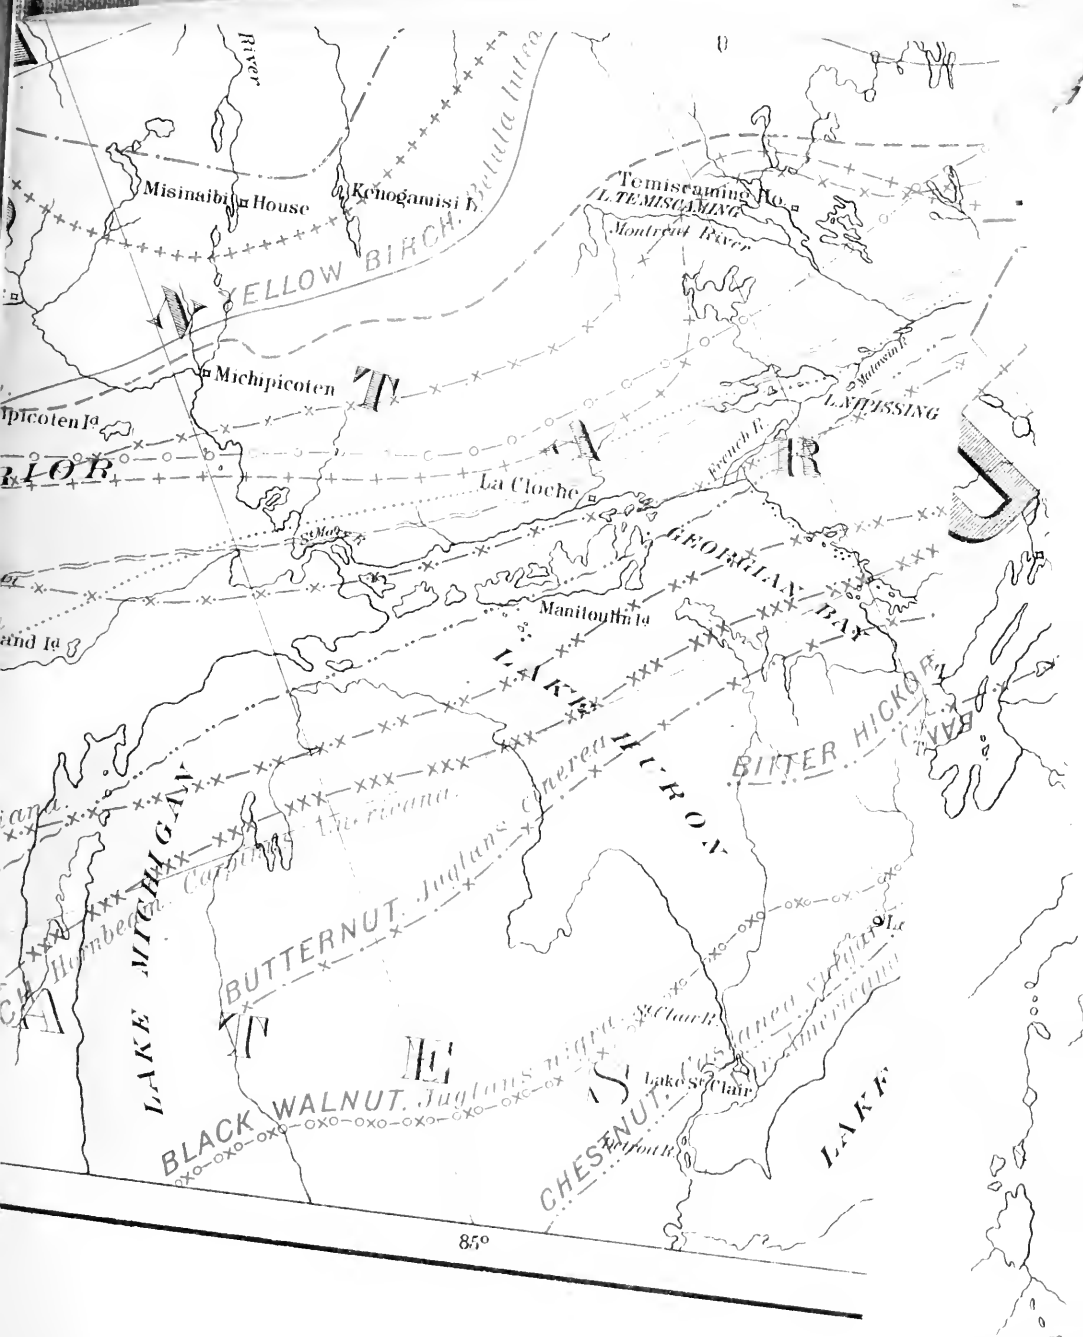 River
Misinaibi House
Kenogamisi L.
YELLOW BIRCH. Betula lutea
Temiscaming Ho.
L. TEMISCAMING
Montreal River
N
Michipicoten
T
A
R
Matawin R.
L. NIPISSING
French R.
ipicoten Id
RIOR
La Cloche
St Mary R.
GEORGIAN BAY
Manitoulin Id
and Id
LAKE HURON
BITTER HICKOR
LAKE MICHIGAN
iana.
CH Hornbeam. Carpinus Americana.
BUTTERNUT. Juglans Cinerea
A
T
E
S
St Clair R.
BLACK WALNUT. Juglans nigra.
Lake St Clair
CHESTNUT. Castanea vulgar
Americana
Detroit R.
LAKE
85°